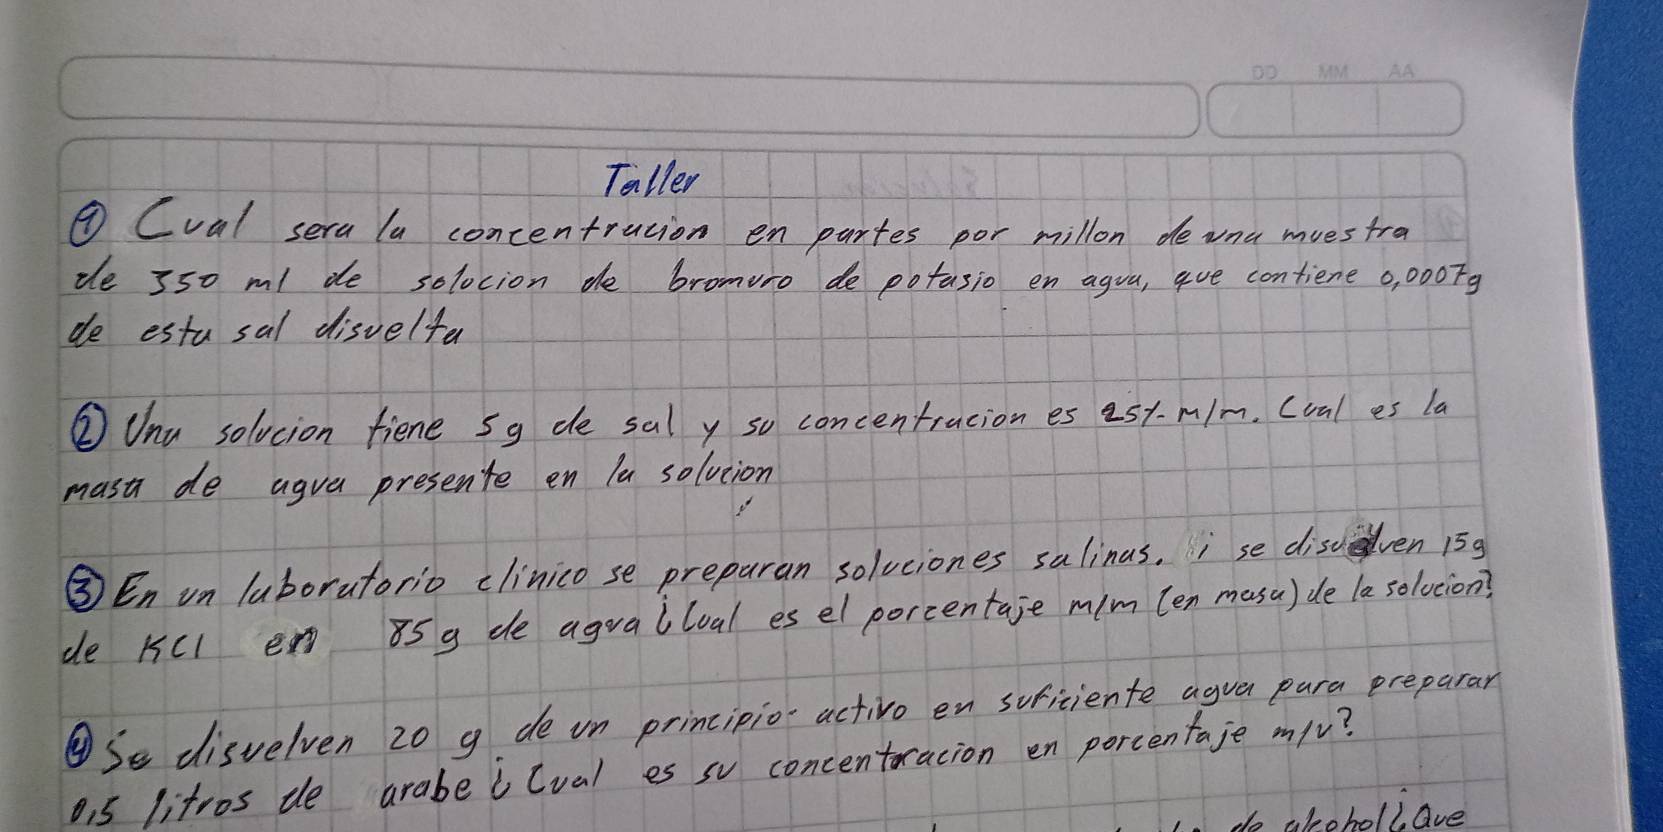 DD MM AA
Taller
① Cual sera la concentracion en partes por millon de una muestra
de 350 ml de solocion de bromuro de potasio en agua, que contiene 0,0007g
de esta sal disuelta
② Una solucion tiene 5g de sal y su concentracion es 25%-m/m. Cual es la
masa de agua presente en la solucion
③ En un laboratorio clinico se preparan soluciones salinas. si se disuelven 15g
de KCl en 85g de agua ¿Cual es el porcentaje m/m (en masa) de la solucion?
④ Se disuelven 20 g de un principio activo en suficiente agua para preparar
0,5 litros de arabe ¿Cual es su concentracion en porcentaje m/v?
de alcohol ¿Que